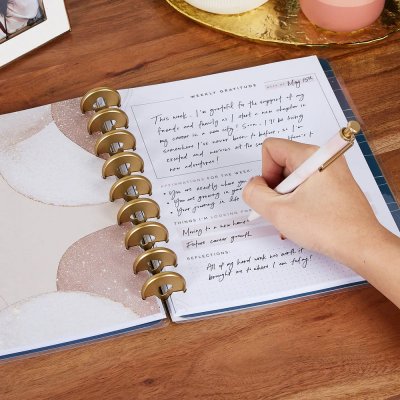 WEEKLY GRATITUDE
WEEK OF: May 15th
This week, I'm grateful for the support of my
friends and family as I start a new chapter in
my career in a new city! Soon, I'll be living
somewhere I've never been to before, so I'm
excited and nervous at the same
new adventures!
AFFIRMATIONS FOR THE WEEK
• You are exactly where you
• You are growing in your
• You're growing in life
THINGS I'M LOOKING
Moving to a new home
Future career growth
REFLECTIONS:
All of my hard work was worth it
brought me to where I am today!